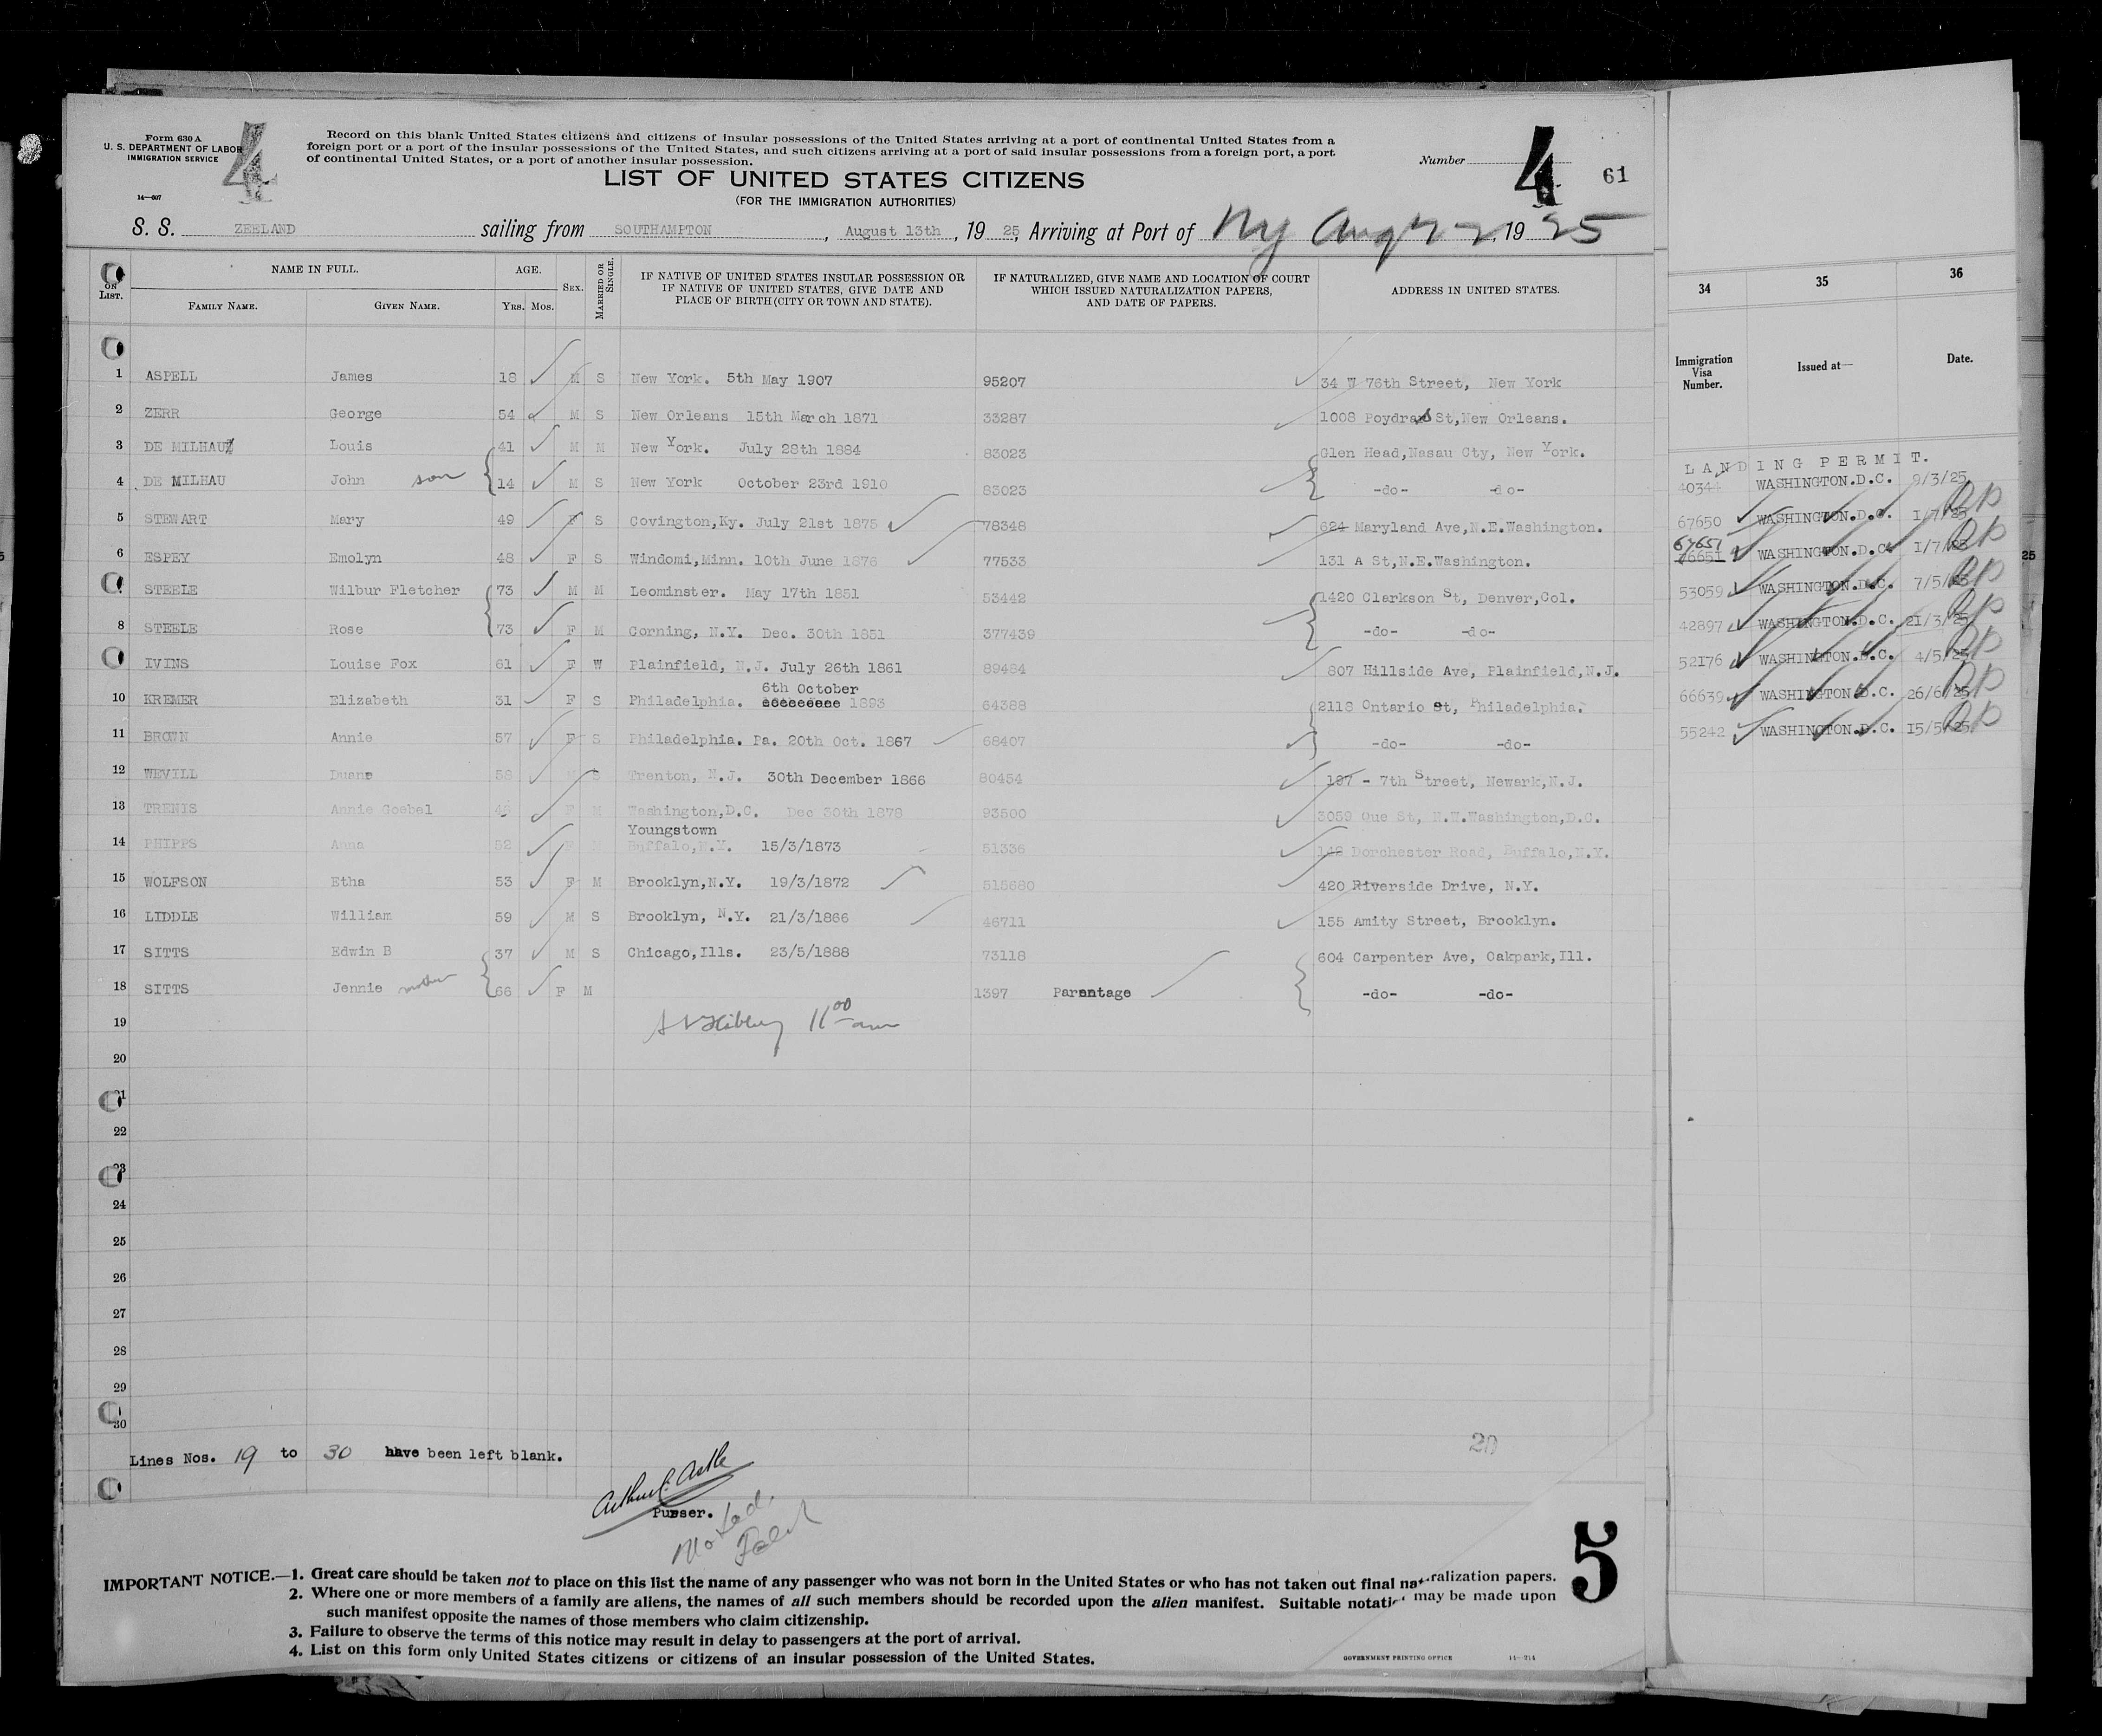 Form 630 A
U. S. DEPARTMENT OF LABOR
IMMIGRATION SERVICE
14—607
4
Record on this blank United States citizens and citizens of insular possessions of the United States arriving at a port of continental United States from a
foreign port or a port of the insular possessions of the United States, and such citizens arriving at a port of said insular possessions from a foreign port, a port
of continental United States, or a port of another insular possession.
Number 4 61
LIST OF UNITED STATES CITIZENS
(FOR THE IMMIGRATION AUTHORITIES)
S. S. ZEELAND sailing from SOUTHAMPTON, August 13th, 19 25, Arriving at Port of Ny Aug 22, 19 25
ON LIST. NAME IN FULL. AGE. SEX. MARRIED OR SINGLE. IF NATIVE OF UNITED STATES INSULAR POSSESSION OR IF NATIVE OF UNITED STATES, GIVE DATE AND PLACE OF BIRTH (CITY OR TOWN AND STATE). IF NATURALIZED, GIVE NAME AND LOCATION OF COURT WHICH ISSUED NATURALIZATION PAPERS, AND DATE OF PAPERS. ADDRESS IN UNITED STATES.
FAMILY NAME. GIVEN NAME. YRS. MOS.
1 ASPELL James 18 M S New York. 5th May 1907 95207 34 W 76th Street, New York
2 ZERR George 54 M S New Orleans 15th March 1871 33287 1008 Poydras St, New Orleans.
3 DE MILHAU Louis 41 M M New York. July 28th 1884 83023 Glen Head, Nasau Cty, New York.
4 DE MILHAU John son 14 M S New York October 23rd 1910 83023 -do- -do-
5 STEWART Mary 49 F S Covington, Ky. July 21st 1875 78348 624 Maryland Ave, N.E. Washington.
6 ESPEY Emolyn 48 F S Windomi, Minn. 10th June 1876 77533 131 A St, N.E. Washington.
STEELE Wilbur Fletcher 73 M M Leominster. May 17th 1851 53442 1420 Clarkson St, Denver, Col.
8 STEELE Rose 73 F M Corning, N.Y. Dec. 30th 1851 377439 -do- -do-
IVINS Louise Fox 61 F W Plainfield, N.J. July 26th 1861 89484 807 Hillside Ave, Plainfield, N.J.
6th October
10 KREMER Elizabeth 31 F S Philadelphia. 1893 64388 2118 Ontario St, Philadelphia.
11 BROWN Annie 57 F S Philadelphia. Pa. 20th Oct. 1867 68407 -do- -do-
12 WEVILL Duane 58 S Trenton, N.J. 30th December 1866 80454 197 - 7th Street, Newark, N.J.
13 TRENIS Annie Goebel F M Washington, D.C. Dec 30th 1878 93500 3059 Que St, N.W. Washington, D.C.
Youngstown
14 PHIPPS Anna 52 Buffalo, N.Y. 15/3/1873 51336 142 Dorchester Road, Buffalo, N.Y.
15 WOLFSON Etha 53 F M Brooklyn, N.Y. 19/3/1872 515680 420 Riverside Drive, N.Y.
16 LIDDLE William 59 M S Brooklyn, N.Y. 21/3/1866 46711 155 Amity Street, Brooklyn.
17 SITTS Edwin B 37 M S Chicago, Ills. 23/5/1888 73118 604 Carpenter Ave, Oakpark, Ill.
18 SITTS Jennie mother 66 F M 1397 Parentage -do- -do-
19 11 00 am
20
21
22
23
24
25
26
27
28
29
30
20
Lines Nos. 19 to 30 have been left blank.
Purser.
Noted
IMPORTANT NOTICE.—1. Great care should be taken not to place on this list the name of any passenger who was not born in the United States or who has not taken out final na ralization papers.
2. Where one or more members of a family are aliens, the names of all such members should be recorded upon the alien manifest. Suitable notati may be made upon
such manifest opposite the names of those members who claim citizenship.
3. Failure to observe the terms of this notice may result in delay to passengers at the port of arrival.
4. List on this form only United States citizens or citizens of an insular possession of the United States.
GOVERNMENT PRINTING OFFICE 14—214
5
34 35 36
Immigration Visa Number. Issued at— Date.
LANDING PERMIT.
4034 WASHINGTON.D.C. 9/3/25
67650 WASHINGTON.D.C. 1/7/25
67651
76651 WASHINGTON.D.C. 1/7/25
53059 WASHINGTON.D.C. 7/5/25
42897 WASHINGTON.D.C. 21/3/25
52176 WASHINGTON.D.C. 4/5/25
66639 WASHINGTON.D.C. 26/6/25
55242 WASHINGTON.D.C. 15/5/25
25